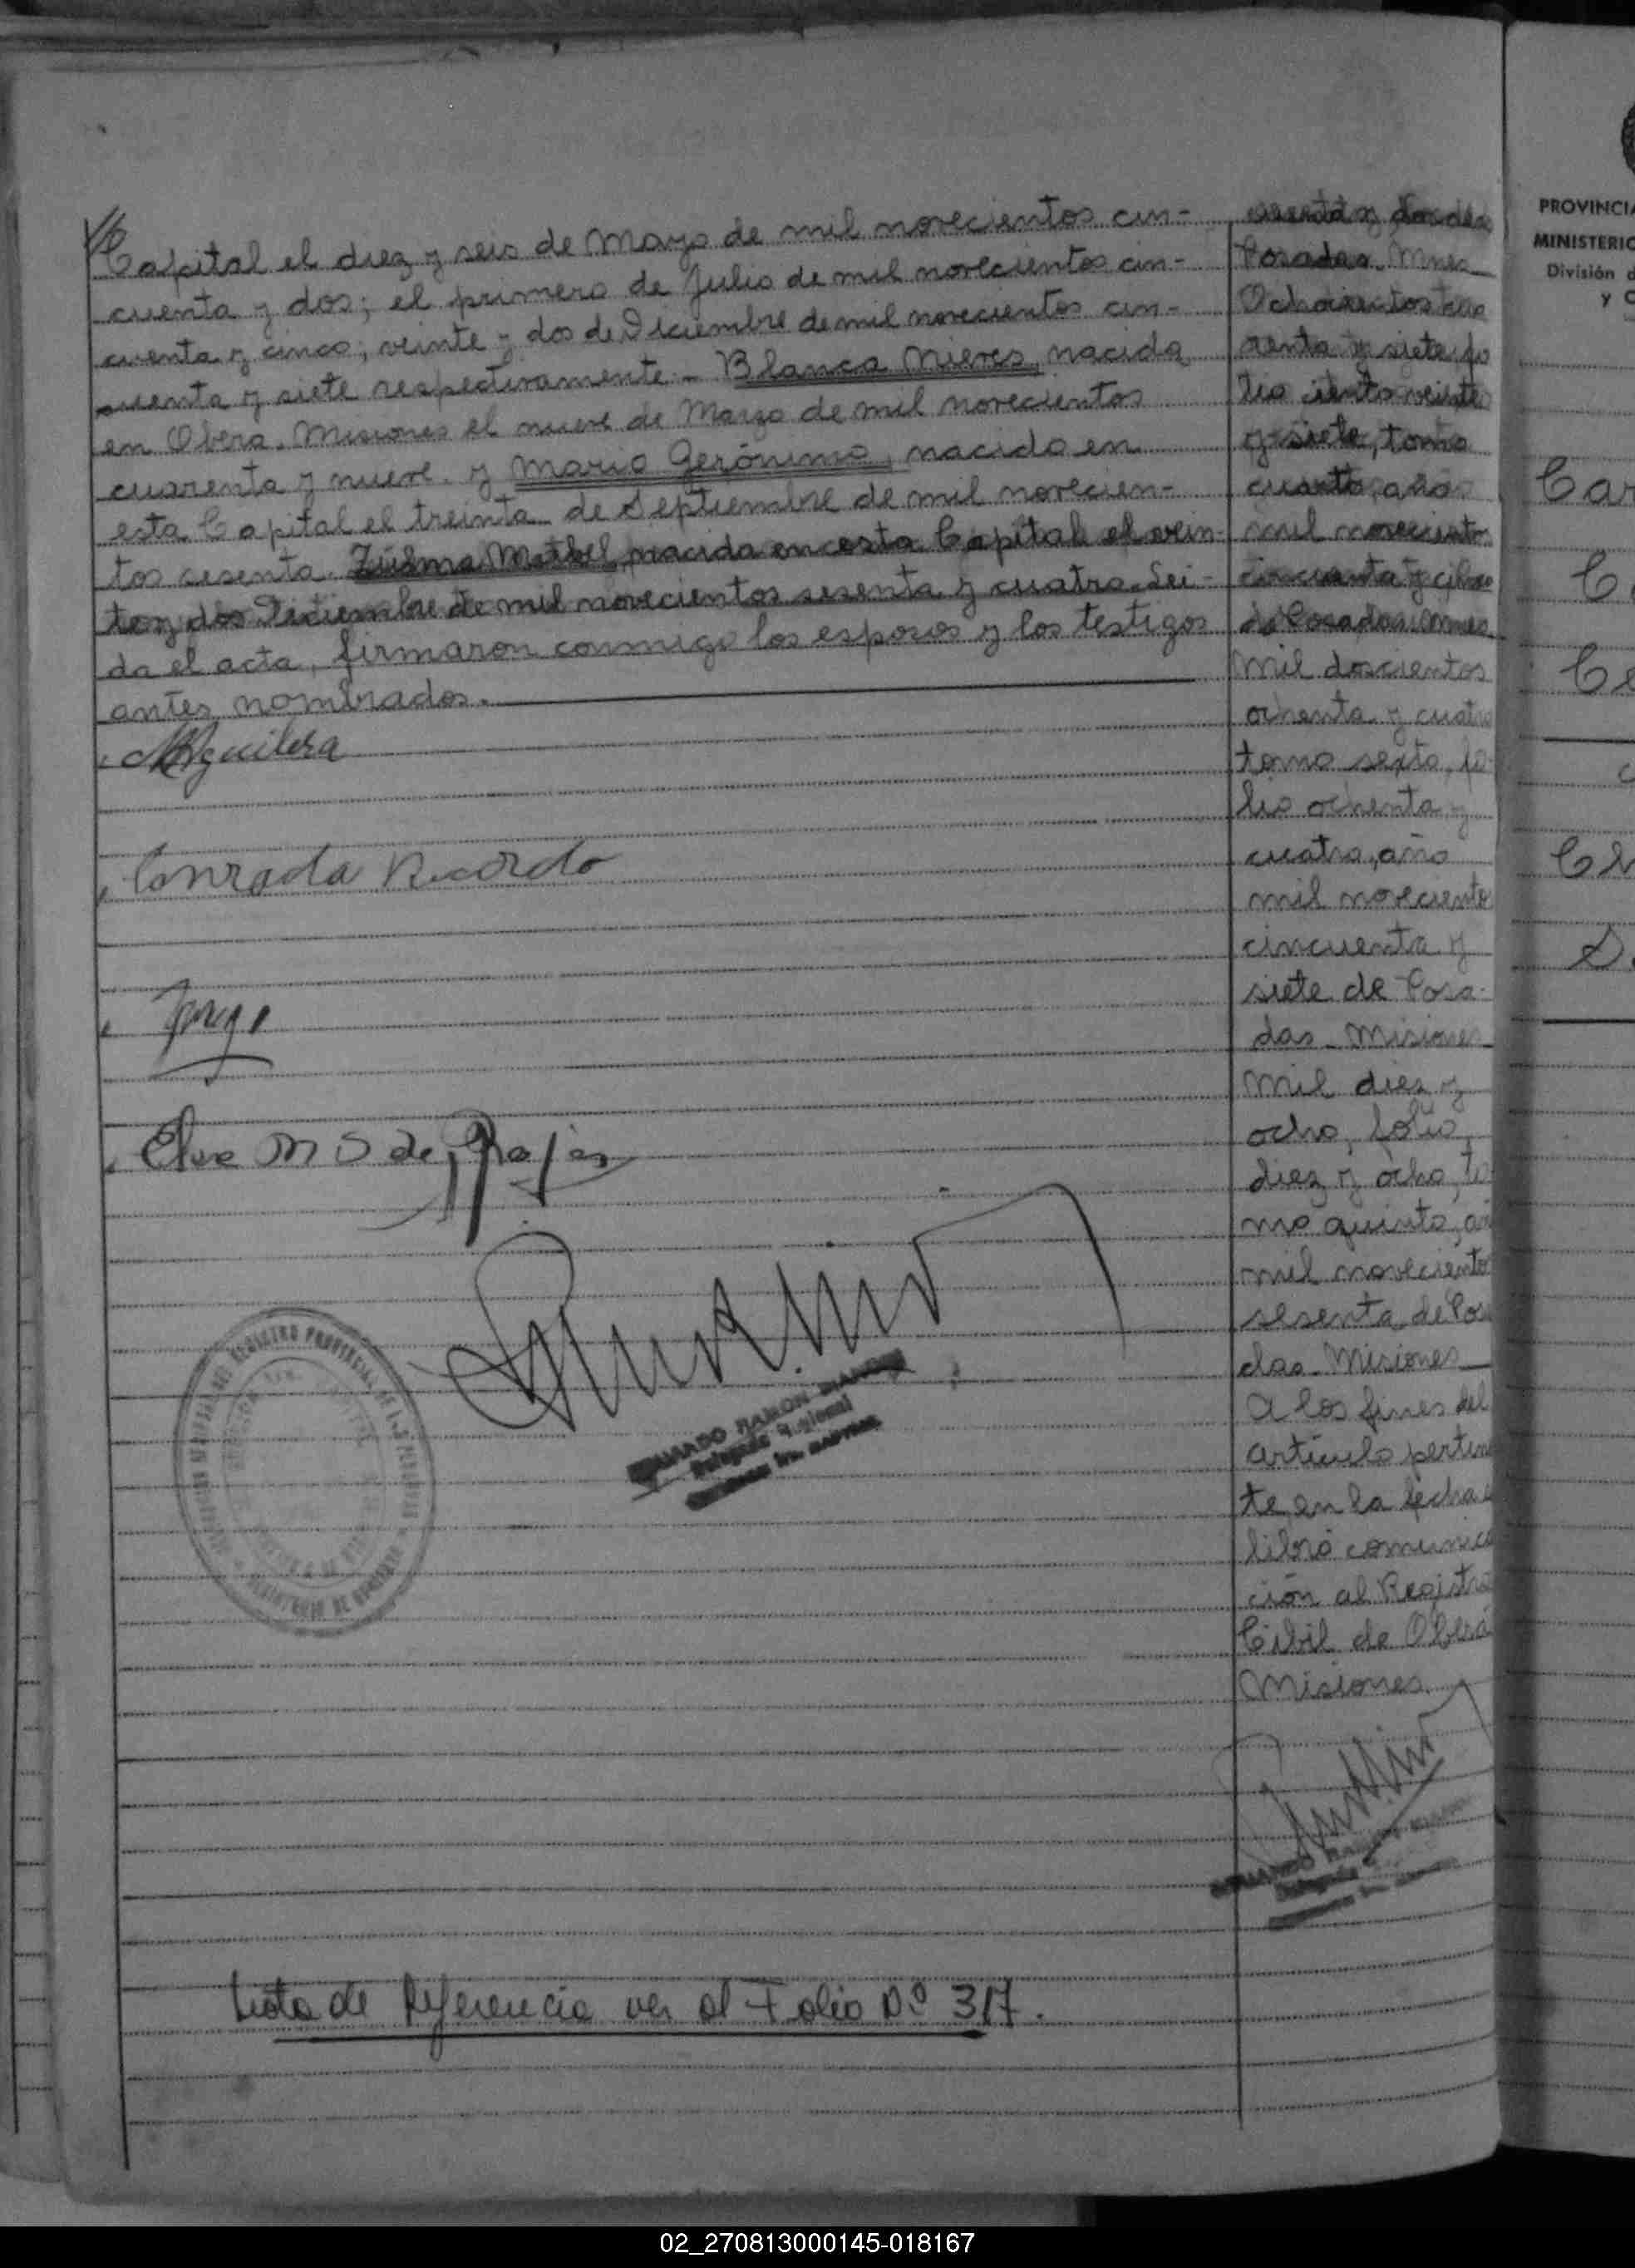 Capital el diez y seis de Mayo de mil novecientos cin-
cuenta y dos; el primero de Julio de mil novecientos cin-
cuenta y cinco; veinte y dos de Diciembre de mil novecientos cin-
cuenta y siete respectivamente.- Blanca Nieves, nacida
en Obera. Misiones el nueve de Marzo de mil novecientos
cuarenta y nueve. y Mario Gerónimo, nacido en
esta Capital el treinta de Septiembre de mil novecien-
tos cesenta. Zulma Mabel, nacida en esta Capital el vein-
te y dos Diciembre de mil novecientos sesenta y cuatro. Lei-
da el acta, firmaron conmigo los esposos y los testigos
antes nombrados.
Aguilera
Conrada Ricardo
Elva M S de Rojas
RAMON
Delegado Regional
y dos de
Posadas. Mnes
Ochocientos cua
renta y siete, fo
lio ciento veinte
y siete, tomo
cuarto, año
mil noveciento
cincuenta y cinco
de Posadas. Mnes.
Mil doscientos
ochenta y cuatro
tomo sexto, fo
lio ochenta y
cuatro, año
mil noveciento
cincuenta y
siete de Posa-
das. Misiones
Mil diez y
ocho, folio,
diez y ocho, to
mo quinto, añ
mil noveciento
sesenta de Pos
das. Misiones
A los fines del
artículo pertin
te en la fecha
libró comunica
ción al Registro
Cibil de Oberá
Misiones.
Nota de Referencia ver al Folio Nº 317.
PROVINCIA
MINISTERIO
División d
y C
Car
02_270813000145-018167